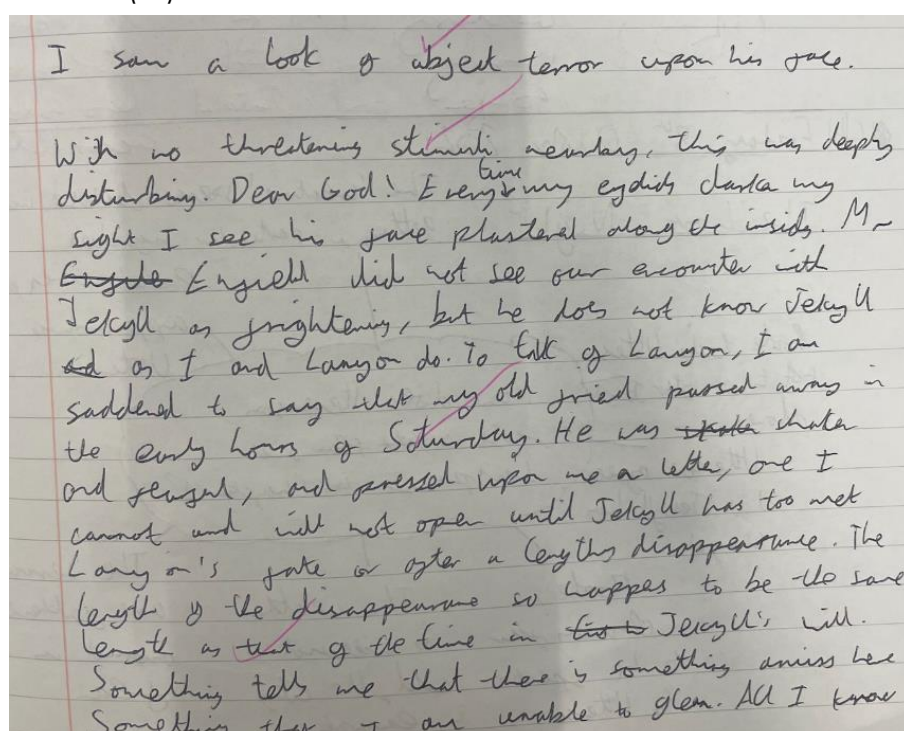 I saw a look of abject terror upon his face.
With no threatening stimuli nearby, this was deeply
disturbing. Dear God! Every time my eyelids darken my
sight I see his face plastered along the inside. Mr
Engile Enfield did not see our encounter with
Jekyll as frightening, but he does not know Jekyll
ad as I and Lanyon do. To talk of Lanyon, I am
saddened to say that my old friend passed away in
the early hours of Saturday. He was shaken
and fearful, and pressed upon me a letter, one I
cannot and will not open until Jekyll has too met
Lanyon's fate or after a lengthy disappearance. The
length of the disappearance so happens to be the same
length as that of the time in Jekyll's will.
Something tells me that there is something amiss here
Something that I am unable to glean. All I know